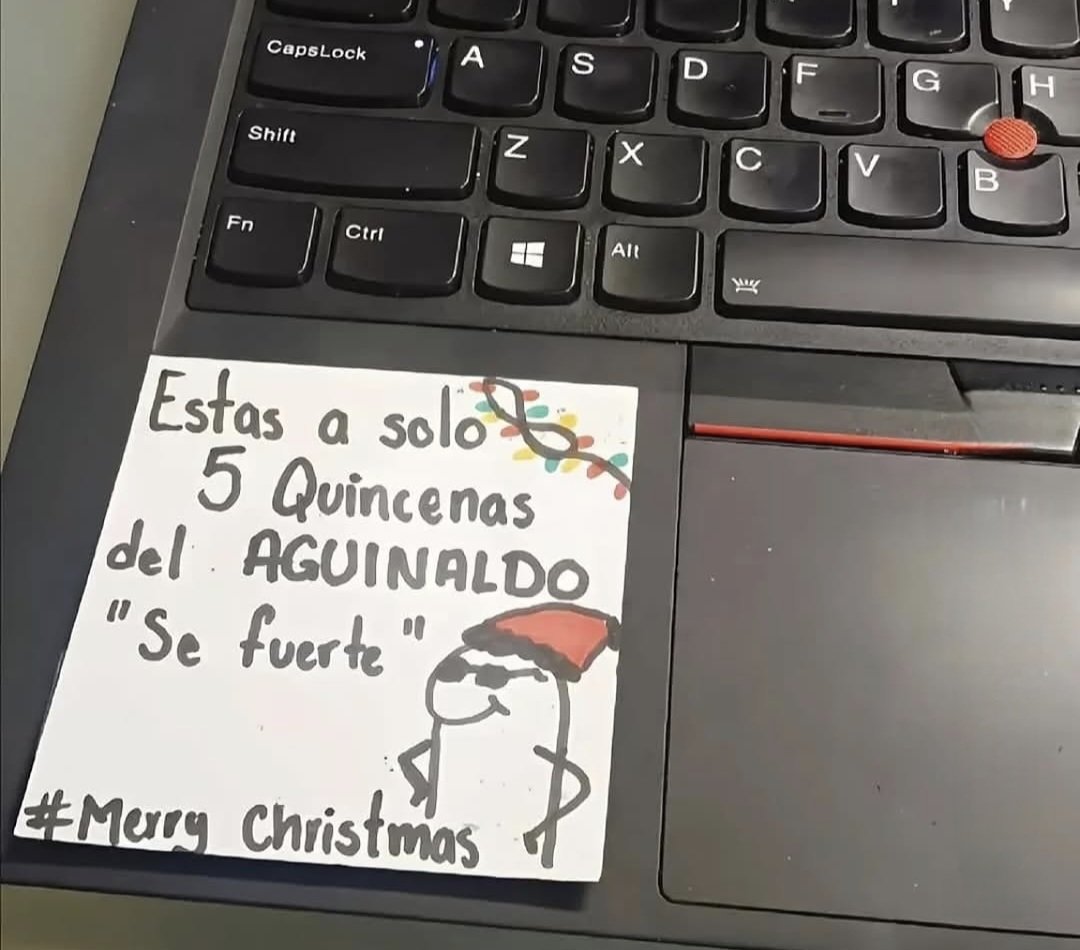 CapsLock A S D F G H
Shift Z X C V B
Fn Ctrl Alt
Estas a solo
5 Quincenas
del AGUINALDO
"Se fuerte"
#Merry Christmas